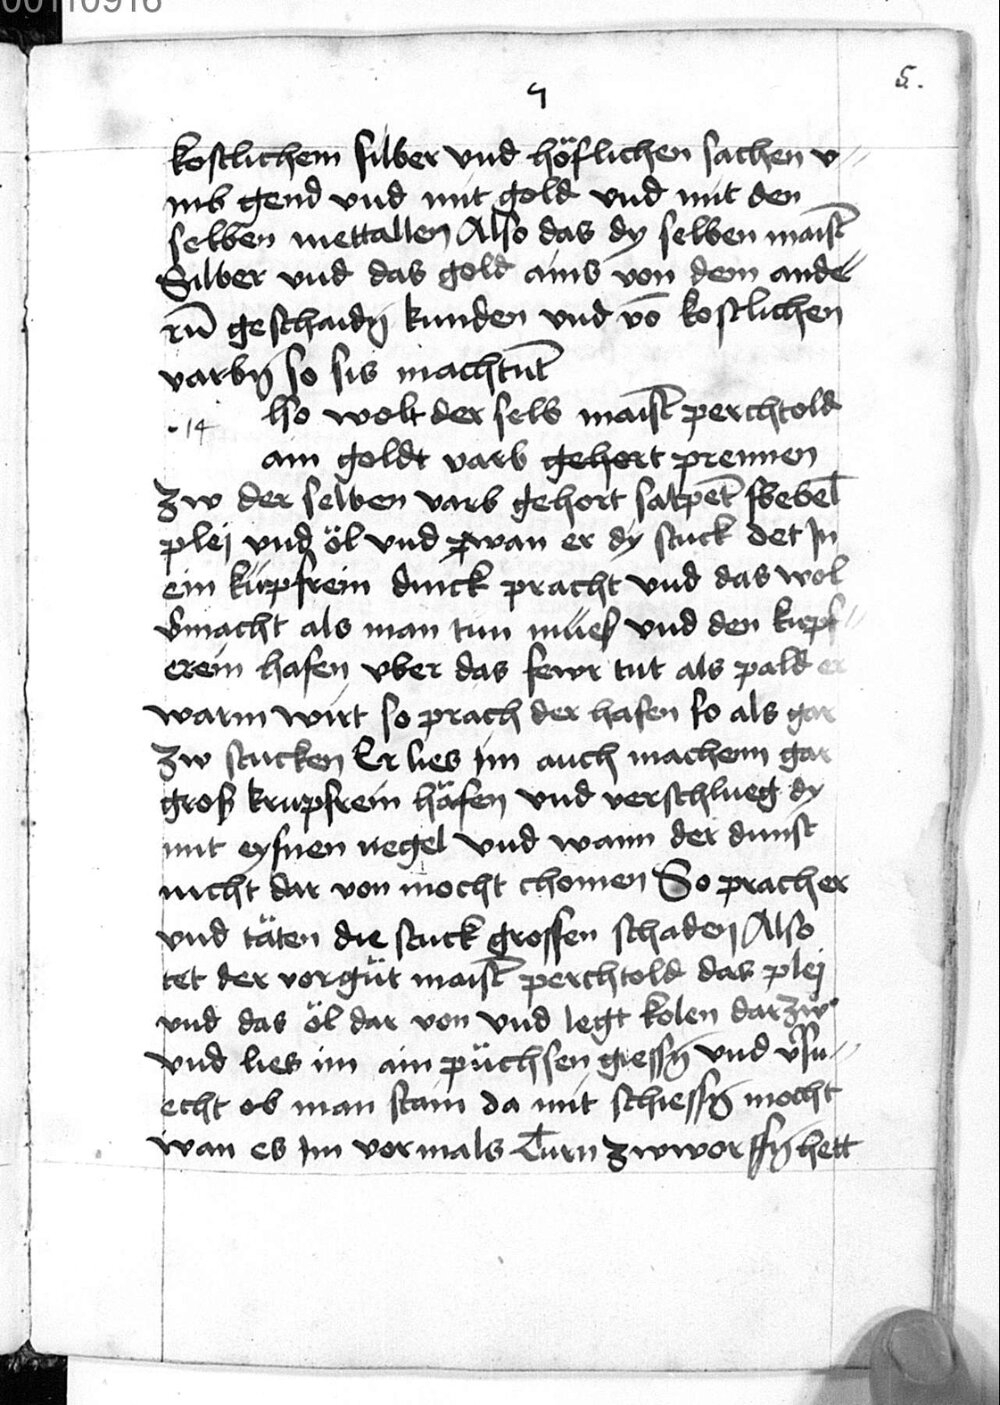 00110916
5.
9
kostlichem silber vnd höflichen sachen v=
mb gend vnd mit gold vnd mit den
selben mettallen Also das dy selben maist̄
Silber vnd das gold ains von dem ande=
rn̄ geschaidn̄ kunden vnd vō kostlichen
varbn̄ so sis machtn̄t
·14 lso wolt der selb maist̄ perchtold
ain goldt varb gehort prennen
Zw der selben varb gehort salpet̄ sbebel̄
plej vnd öl vnd wan er dy stuck det Jn
ein kupfrein dinck pracht vnd das wol
v̄macht als man tun mues vnd den kupf=
erein hafen vber das fewr tut als pald er
warm wirt so prach der hafen so als gar
Zw stucken Er lies im auch machenn gar
gros krupfrein häfen vnd verschlueg dy
mit eysnen negel vnd wann der dunst
nicht dar von mocht chomen So prach er
vnd täten die stuck grossen schaden Also
tet der vorgüt maist̄ perchtold das plej
vnd das öl dar von vnd legt kolen darzw
vnd lies im ain püchsen giessn̄ vnd v̄su=
echt ob man stain da mit schiessn̄ mocht
wan es Im vormals Turn zwworffn̄ hett